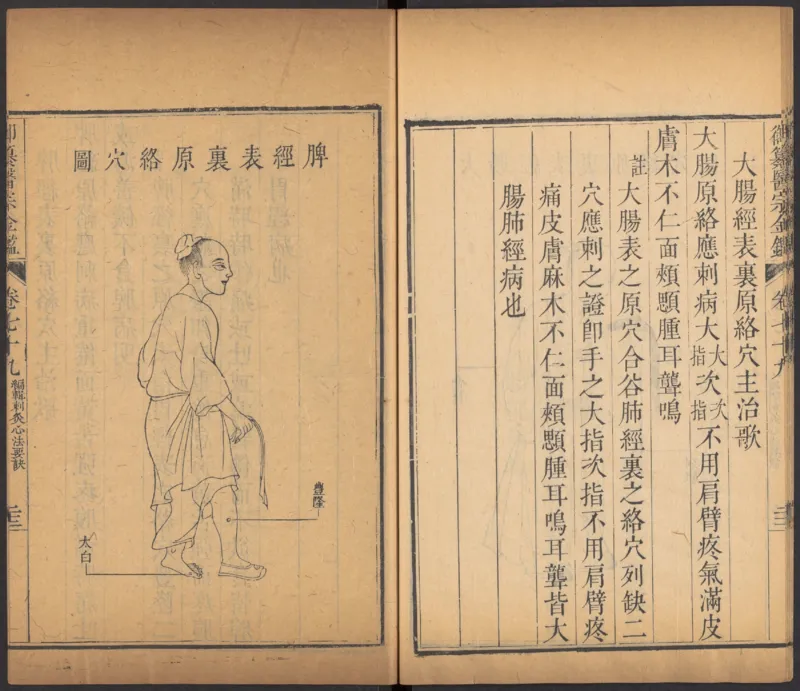 御纂醫宗金鑑
卷七十九
大腸經表裏原絡穴主治歌
大腸原絡應刺病大大指次次指不用肩臂疼氣滿皮
膚木不仁面頰顋腫耳聾鳴
註大腸表之原穴合谷肺經裏之絡穴列缺二
穴應刺之證卽手之大指次指不用肩臂疼
痛皮膚麻木不仁面頰顋腫耳鳴耳聾皆大
腸肺經病也
脾經表裏原絡穴圖
豐隆
太白
御纂醫宗金鑑
卷七十九
編輯刺灸心法要訣